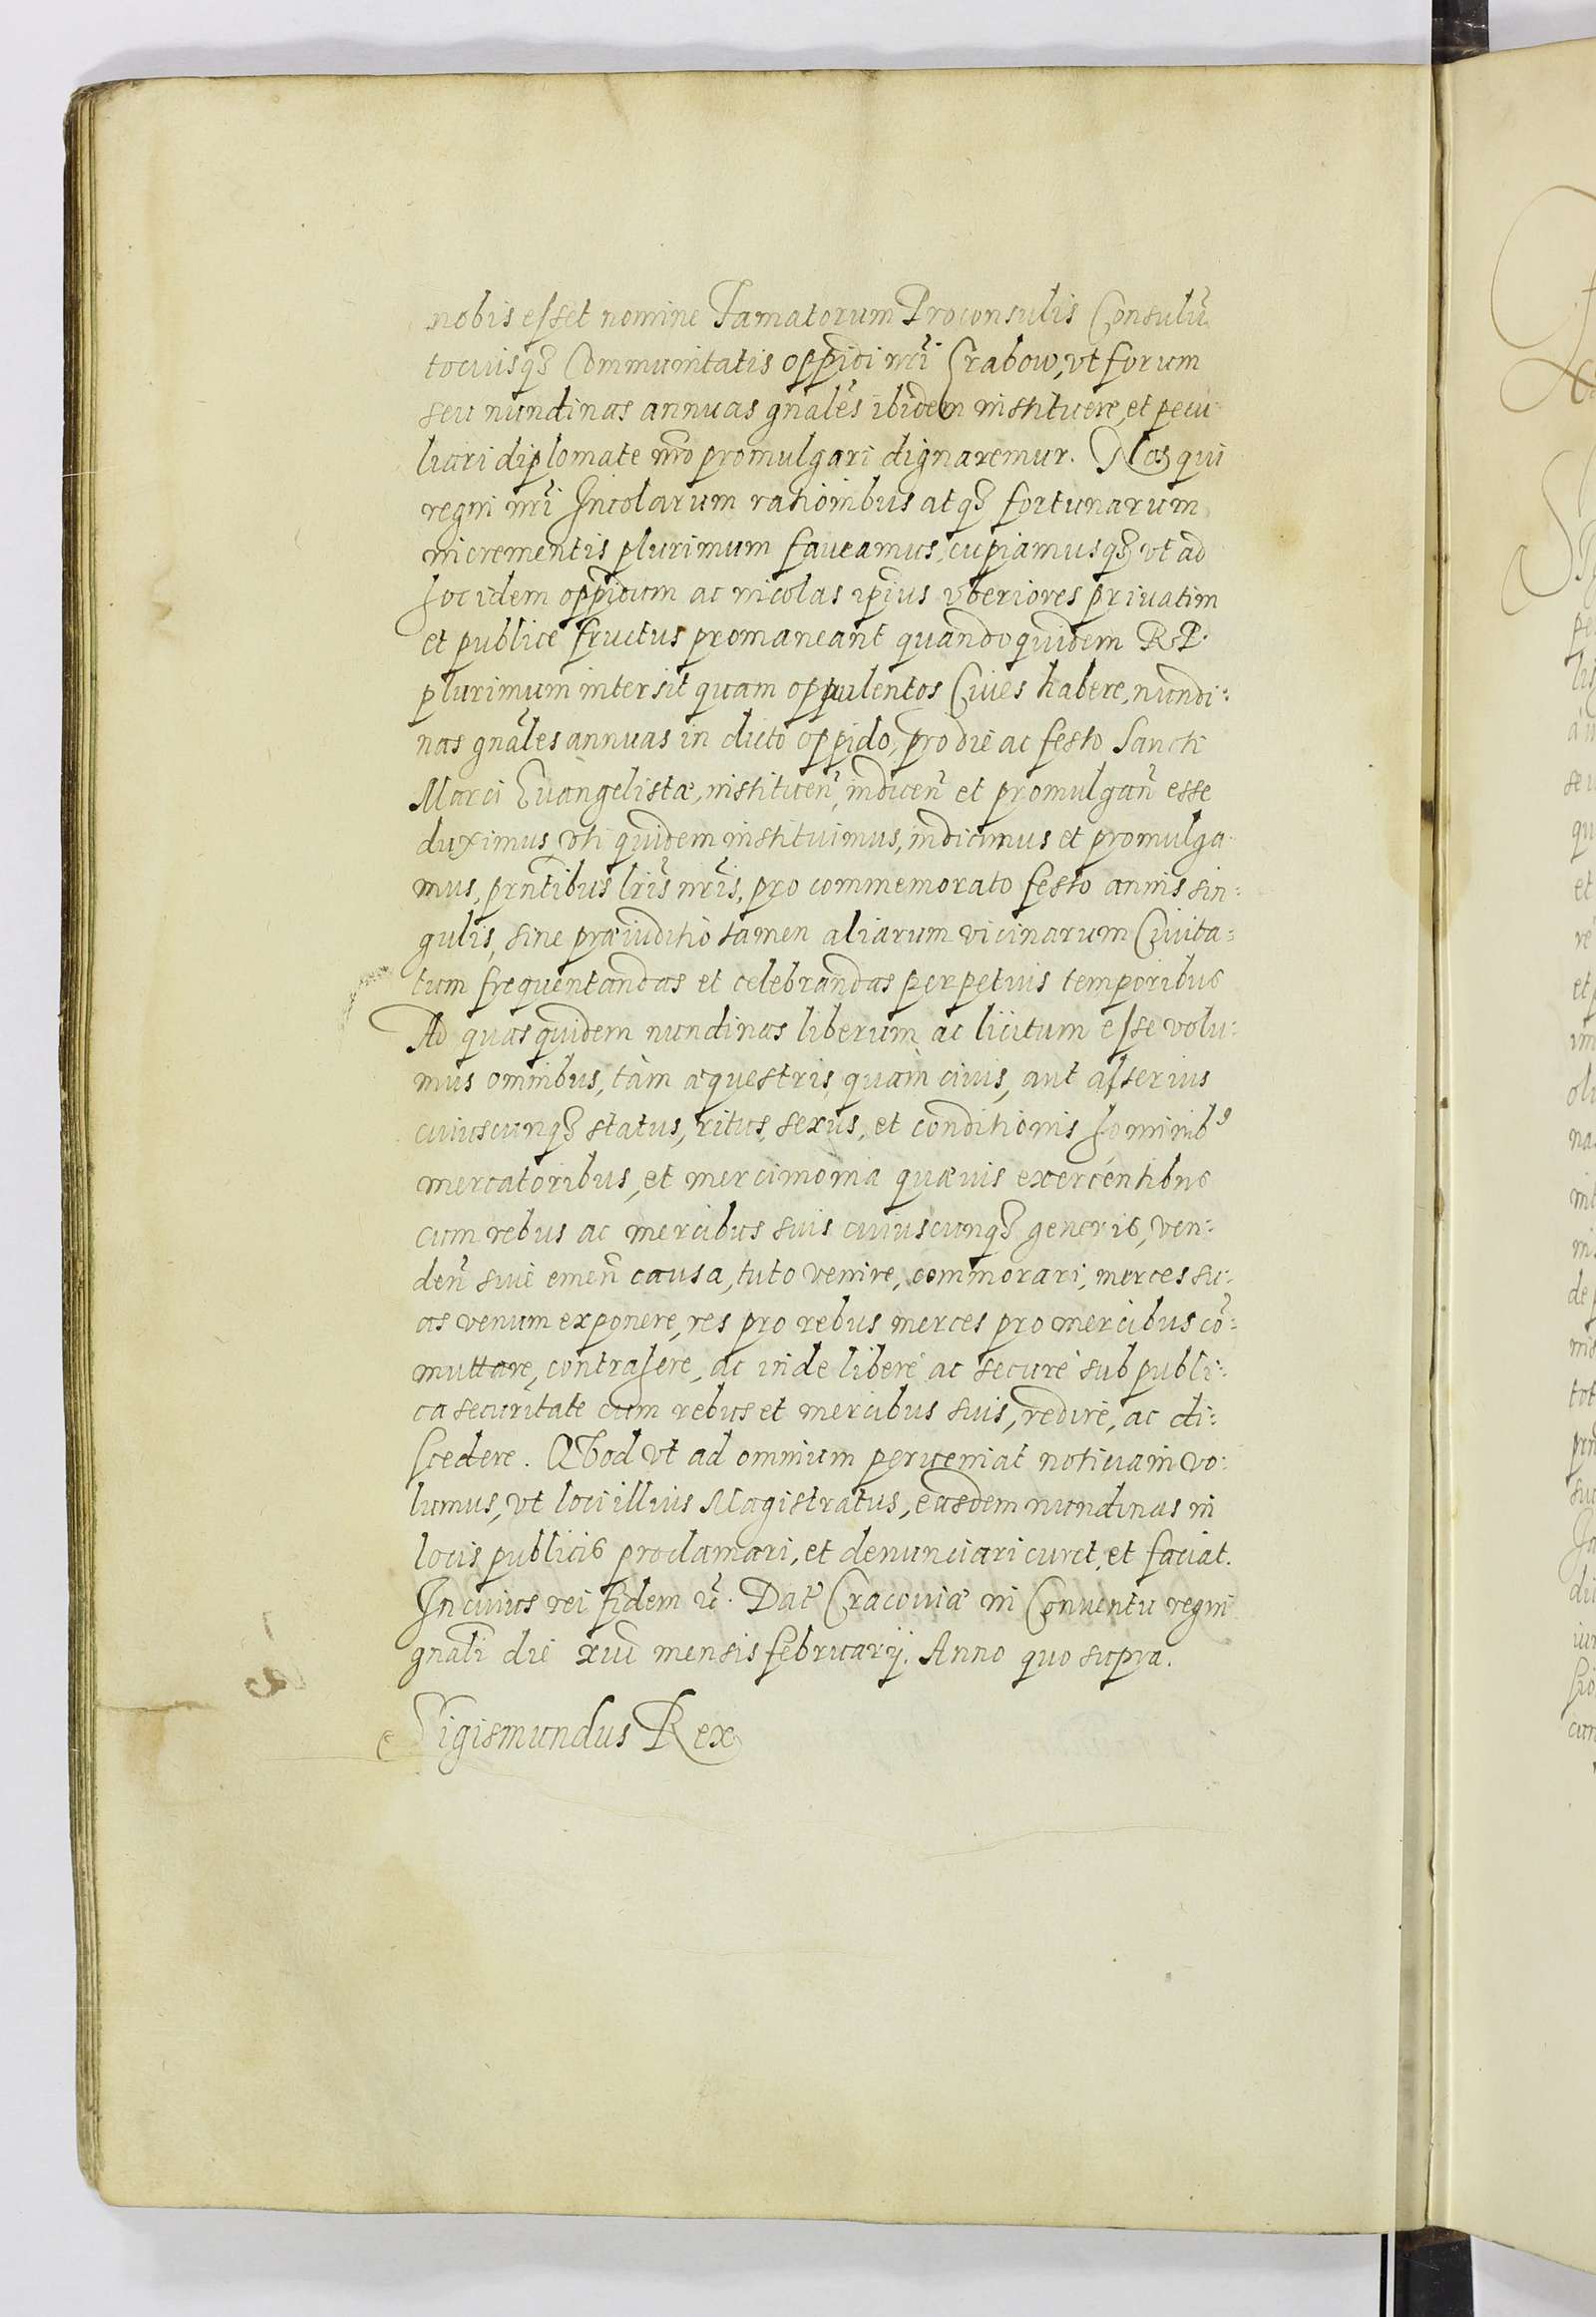 nobis esset nomine Famatorum Proconsulis Consulū
tociusq3 Communitatis oppidi nr̄i Grabow, vt forum
seu nundinas annuas gnāles ibidem instituere, et pecu-
liari diplomate nr̄o promulgari dignaremur. Nos qui
regni nr̄i Incolarum rationibus atq3 fortunarum
incrementis plurimum faveamus, cupiamusq3 vt ad
hoc idem oppidum ac incolas ip̄ius vberiores privatim
et publice fructus promaneant quandoquidem RP.
plurimum intersit quam oppulentos Cives habere, nundi:
nas gnāles annuas in dicto oppido, pro die ac festo Sancti
Marci Evangelistæ, instituen̄, indicen̄ et promulgan̄ esse
duximus vti quidem instituimus, indicimus et promulga-
mus, prn̄tibus lr̄is nr̄is, pro commemorato festo annis sin:
gulis, sine præiuditio tamen aliarum vicinarum Civita:
tum frequentandas et celebrandas perpetuis temporibus
Ad quas quidem nundinas liberum ac licitum esse volu:
mus omnibus, tàm æquestris, quàm civis, aut alterius
cuiuscunq3 status, ritus, sexus, et conditionis hominib9
mercatoribus, et mercimonia quævis exercéntibus
cum rebus ac mercibus suis cuiuscunq3 generis, ven:
den̄ sivè emen̄ causa, tuto venire, commorari, merces su:
as venum exponere, res pro rebus merces pro mercibus cō:
muttare, contrahere, ac inde liberé ac securé sub publi:
ca securitate cum rebus et mercibus suis, redire, ac di:
scedere. QVod vt ad omnium perveniat notitiam vo:
lumus, vt loci illius Magistratus, easdem nundinas in
locis publicis proclamari, et denunciari curet, et faciat.
In cuius rei fidem &c̄. Dat̄ Cracoviæ in Conventu regni
gnāli die xiii mensis februarij. Anno quo supra.
Sigismundus Rex